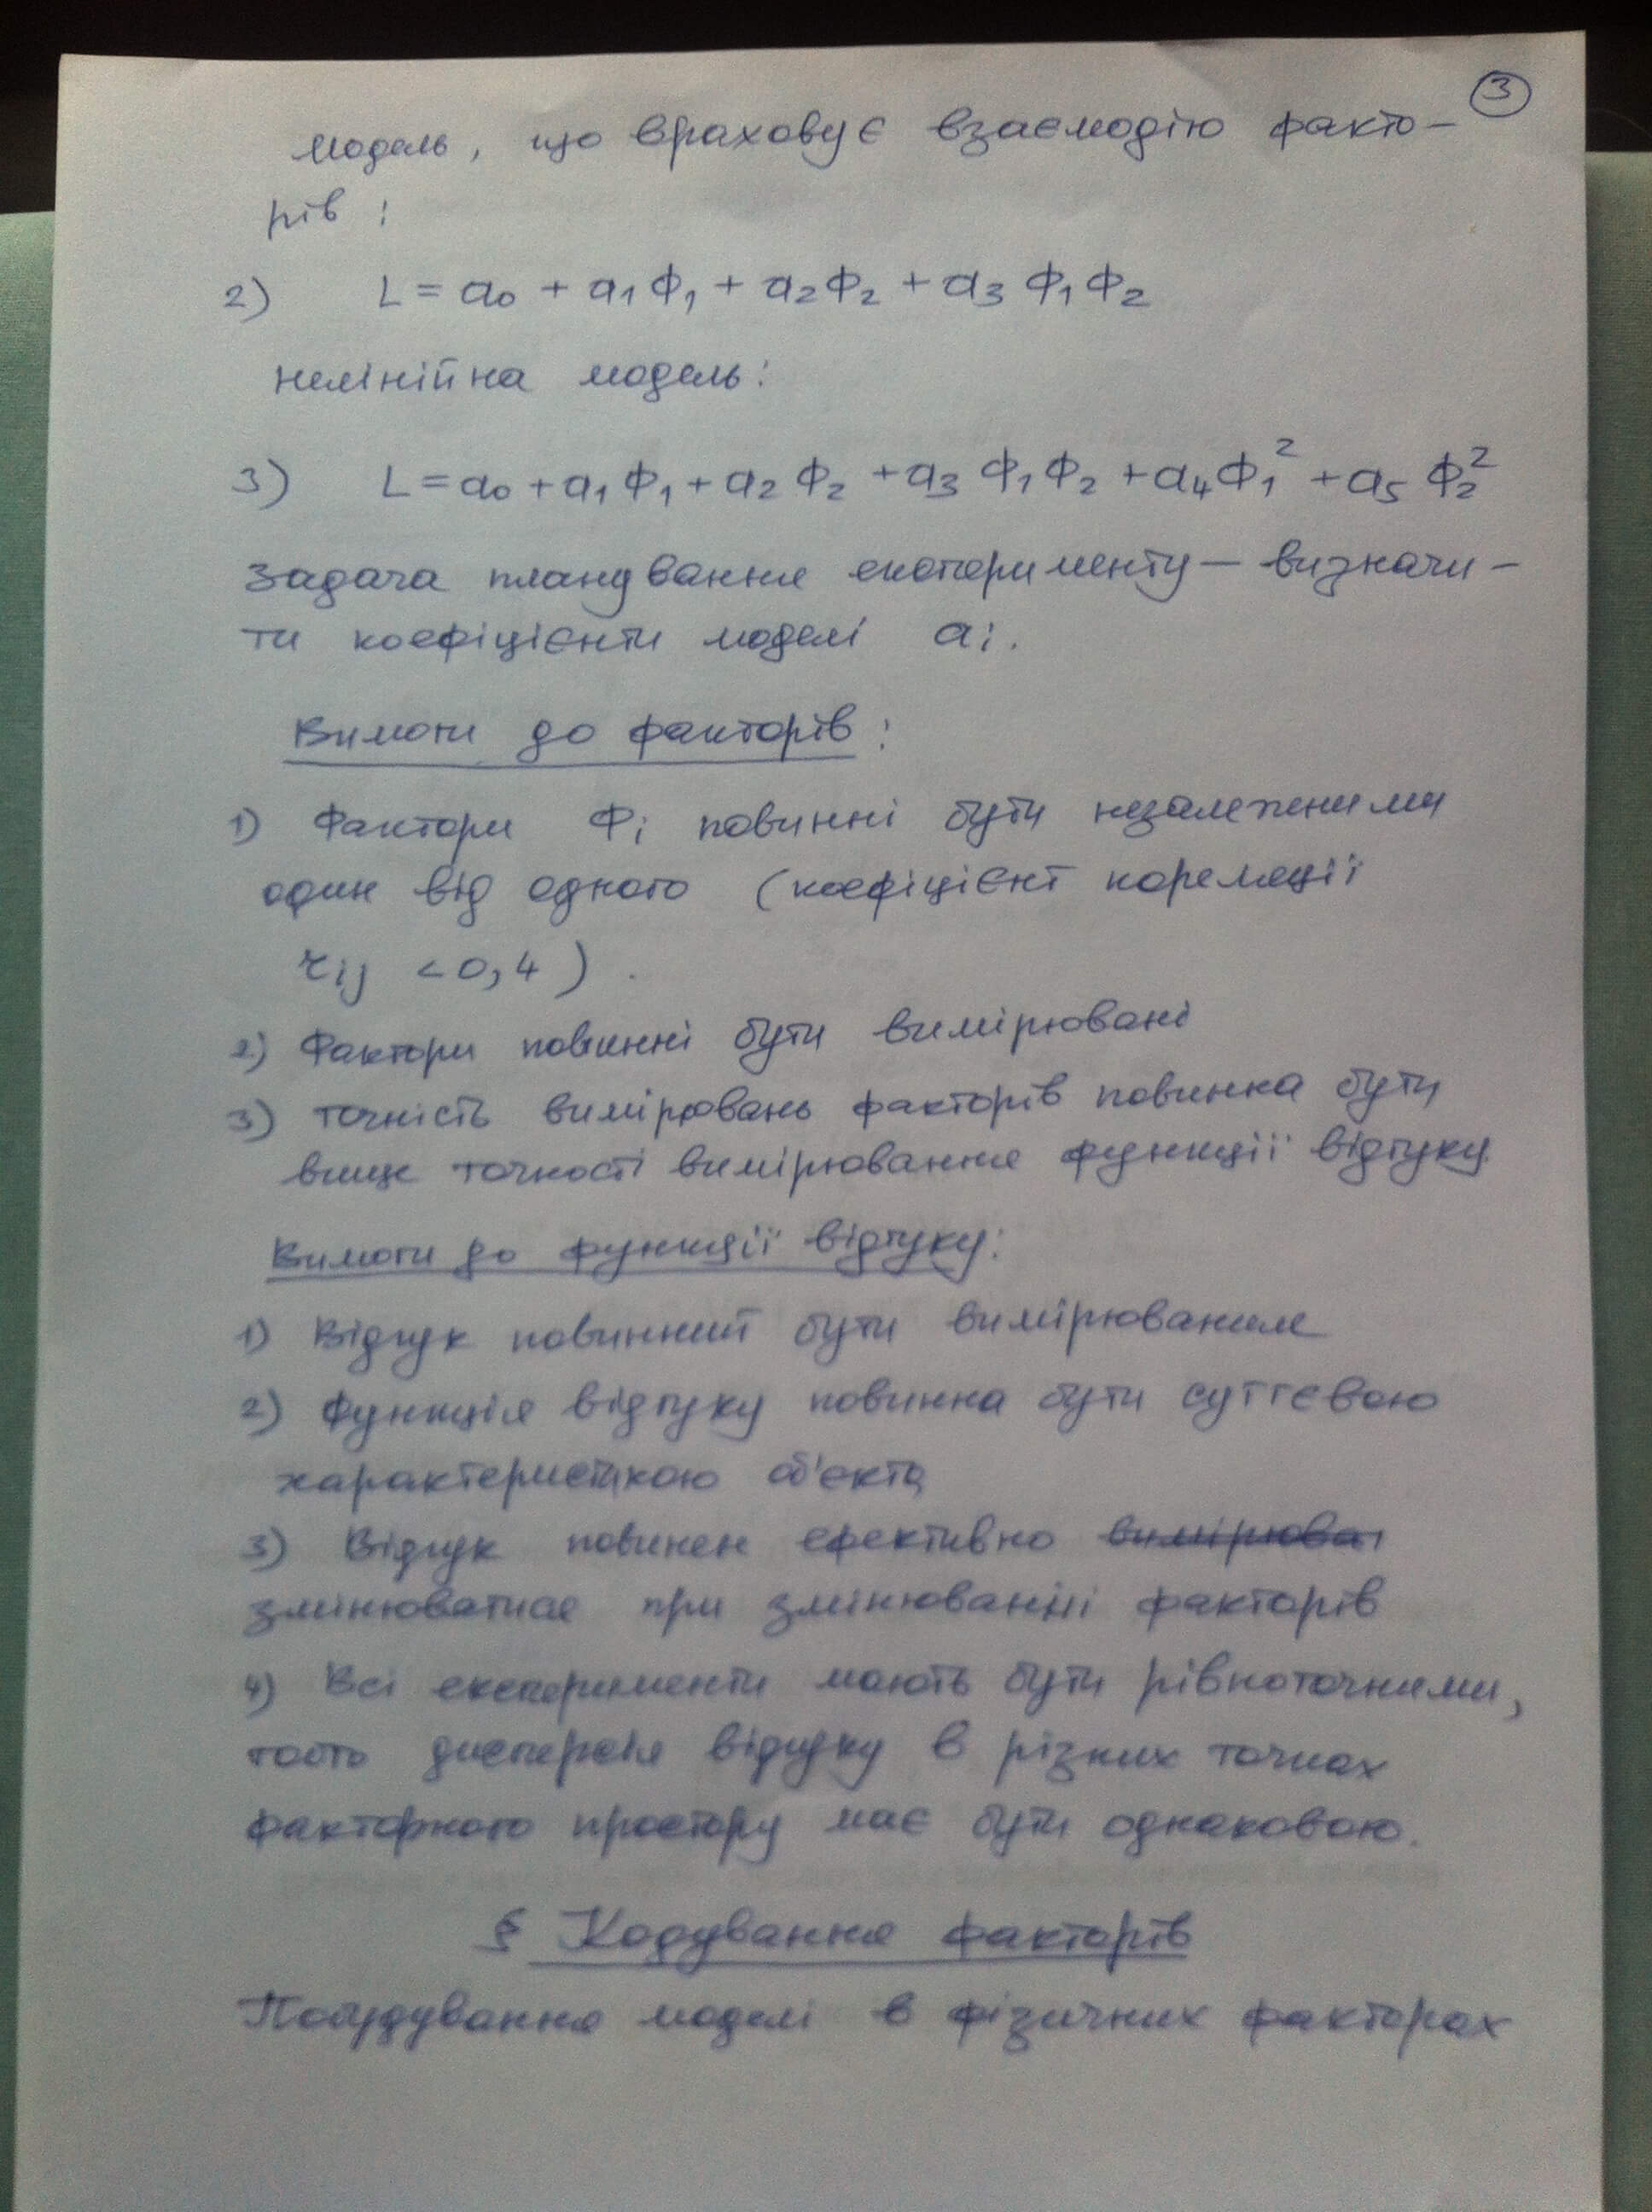 3
модель, що враховує взаємодію факто-
рів:
2) L = a₀ + a₁Ф₁ + a₂Ф₂ + a₃Ф₁Ф₂
нелінійна модель:
3) L = a₀ + a₁Ф₁ + a₂Ф₂ + a₃Ф₁Ф₂ + a₄Ф₁² + a₅Ф₂²
Задача планування експерименту — визначи-
ти коефіцієнти моделі aᵢ.
Вимоги до факторів:
1) Фактори Фᵢ повинні бути незалежними
один від одного (коефіцієнт кореляції
rᵢⱼ < 0,4).
2) Фактори повинні бути вимірювані
3) точність вимірювань факторів повинна бути
вище точності вимірювання функції відгуку
Вимоги до функції відгуку:
1) Відгук повинний бути вимірюваним
2) Функція відгуку повинна бути суттєвою
характеристикою об'єкта
3) Відгук повинен ефективно вимірюват
змінюватися при змінюванні факторів
4) Всі експерименти мають бути рівноточними,
тобто дисперсія відгуку в різних точках
факторного простору має бути однаковою.
§ Кодування факторів
Побудування моделі в фізичних факторах